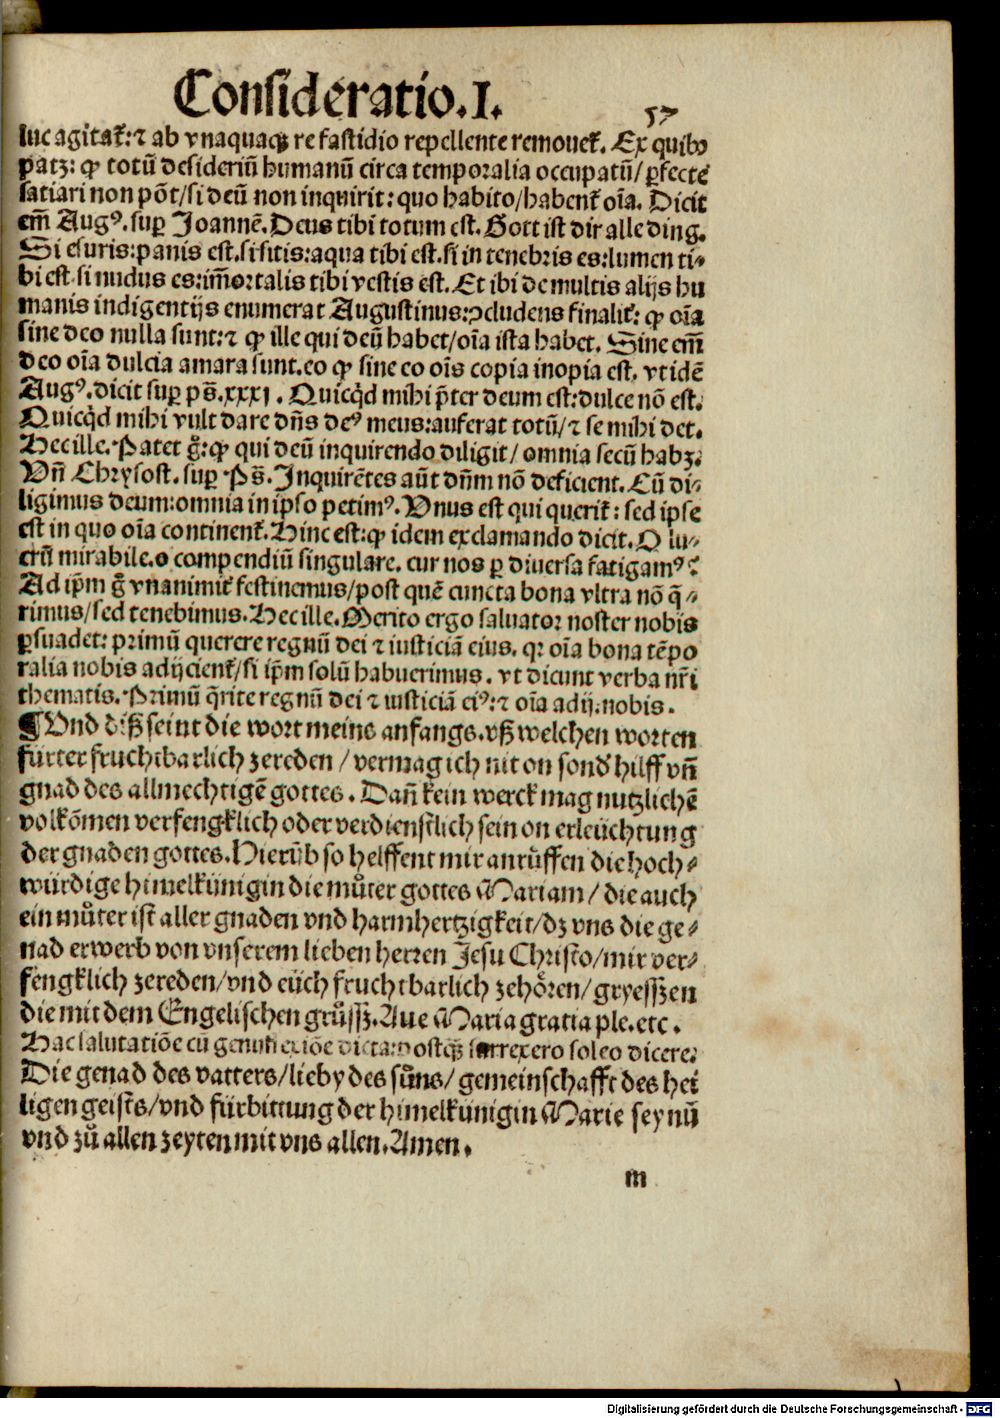 Consideratio.I.
57
luc agitat᷑:⁊ ab vnaquaqꝫ re fastidio repellente remouet᷑. Ex quibꝰ
patꝫ: ꝙ totū desideriū humanū circa temporalia occupatū/ ꝑfecte
satiari non põt/si deū non inquirit: quo habito/habent᷑ oĩa. Dicit
em̃ Augꝰ. suꝑ Joannē. Deus tibi totum est. Gott ist dir alle ding.
Si esuris:panis est.si sitis:aqua tibi est.si in tenebris es:lumen ti-
bi est.si nudus es:im̃ortalis tibi vestis est. Et ibi de multis alijs hu
manis indigentijs enumerat Augustinus:ↄcludens finalit᷑: ꝙ oĩa
sine deo nulla sunt:⁊ ꝙ ille qui deū habet/oĩa ista habet. Sine em̃
deo oĩa dulcia amara sunt.eo ꝙ sine eo oĩs copia inopia est. vt idē
Augꝰ. dicit suꝑ ps̃.xxxj. Quicq̇d mihi p̄ter deum est:dulce nō est.
Quicq̇d mihi vult dare dñs deꝰ meus:auferat totū/⁊ se mihi det.
Hec ille. Patet g̃: ꝙ qui deū inquirendo diligit/ omnia secū habꝫ.
Vñ Chrysost. suꝑ Ps̃. Inquirētes aūt dñm nō deficient. Cū di-
ligimus deum:omnia in ipso petimꝰ. Vnus est qui querit᷑: sed ipse
est in quo oĩa continent᷑. Hinc est: ꝙ idem exclamando dicit. O lu-
crū mirabile.o compendiū singulare. cur nos ꝑ diuersa fatigamꝰ?
Ad ip̃m g̃ vnanimit᷑ festinemus/post quē cuncta bona vltra nō q̄-
rimus/sed tenebimus. Hec ille. Merito ergo saluator noster nobis
ꝑsuadet: primū querere regnū dei ⁊ iusticiā eius. qꝛ oĩa bona tēpo
ralia nobis adijcient᷑/si ip̃m solū habuerimus. vt dicunt verba nr̃i
thematis. Primū q̄rite regnū dei ⁊ iusticiā eiꝰ:⁊ oĩa adij. nobis.
¶ Vnd diß seint die wort meins anfangs.vß welchen worten
fürter fruchtbarlich zereden / vermag ich nit on sond̕ hilff vñ
gnad des allmechtigē gottes. Dañ kein werck mag nutzlichē
volkōmen verfengklich oder verdienstlich sein on erleüchtung
der gnaden gottes. Hierūb so helffent mir anrůffen die hoch-
würdige himelkünigin die můter gottes Mariam/ die auch
ein můter ist aller gnaden vnd barmhertzigkeit/dz vns die ge-
nad erwerb von vnserem lieben herren Jesu Christo/mir ver-
fengklich zereden/vnd eüch fruchtbarlich zehören/gryessen
die mit dem Engelischen grůssz. Aue Maria gratia ple. etc.
Hac salutatiōe cū genuflexiōe dicta:postqꝫ surrexero soleo dicere.
Die genad des vatters/lieby des sůns/ gemeinschafft des hei
ligen geists/vnd fürbittung der himelkünigin Marie sey nū
vnd zů allen zeyten mit vns allen. Amen.
m
Digitalisierung gefördert durch die Deutsche Forschungsgemeinschaft - DFG